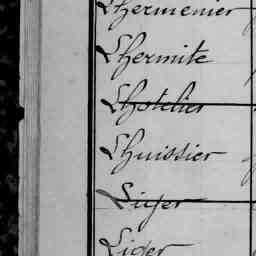 Lhermenier
Lhermite
Lhotelier
Lhuissier
Liger
Liger